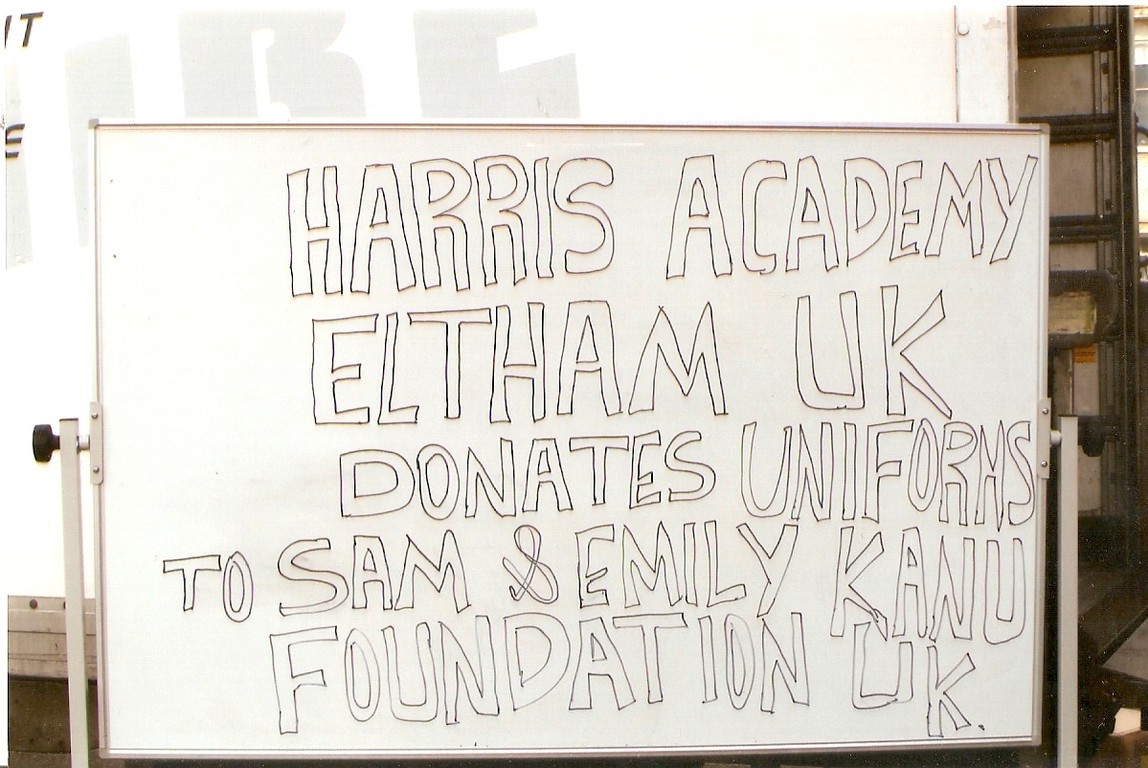 HARRIS ACADEMY
ELTHAM UK
DONATES UNIFORMS
TO SAM & EMILY KANU
FOUNDATION UK.